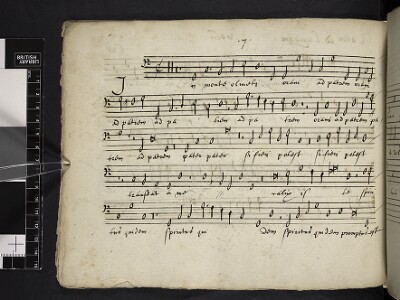 7
In monte oliveti oravi ad patrem
ad patrem ad pa trem ad pa trem oravi ad patrem pa
trem ad patrem pater pater si fieri potest si fieri potest
transeat a me calix is te spi
ritus quidem spiritus qui dem spiritus quidem promptus est
BRITISH
LIBRARY